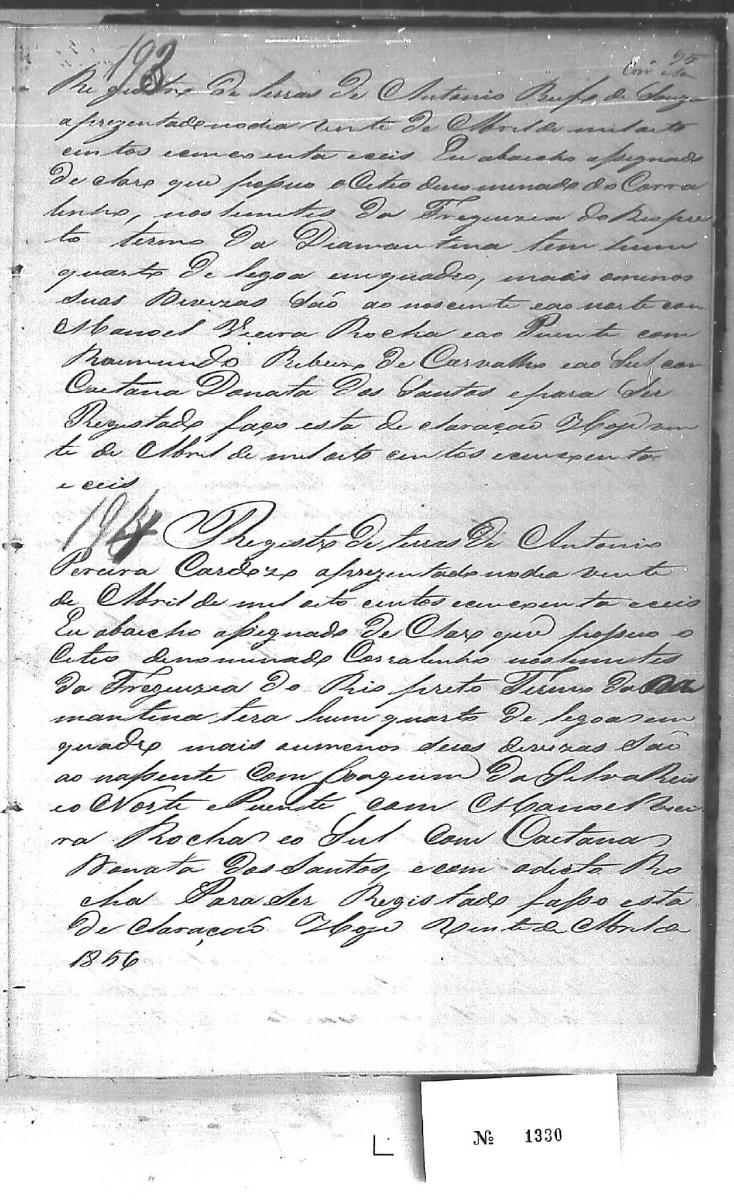 193
95
Registro de terras de Antonio Rufo de Souza
aprezentado no dia vinte de Abril de mil oito
centos e cincoenta e ceis Eu abaicho assignado
de claro que possuo o Citio denominado do Corra
linho, nos lemites da Freguezia do Rio pre
to termo da Diamantina tem hum
quarto de legoa em quadro, mais ou menos
suas Devizas São ao noscente e ao norte com
Manoel Vieira Rocha e ao Puente com
Raimundo Ribeiro de Carvalho e ao Sul com
Caetana Donata dos Santos e para Ser
Registado faço esta de claração Hoje vin
te de Abril de mil oito centos e cincoenta
e ceis
194 Registro de terras de Antonio
Pereira Cardozo aprezentado no dia vinte
de Abril de mil oito centos e cincoenta e ceis
Eu abaicho assignado de Claro que possuo o
Citio denominado Corralinho nos lemites
da Freguezia do Rio preto Termo da Dia
mantina tera hum quarto de legoa em
quadro mais ou menos suas devizas São
ao nassente com Joaquim da Silva Reis
e o Norte e Puente com Manoel Viei
ra Rocha e o Sul com Caetana
Donata dos Santos, e com o dito Ro
cha Para Ser Registado fasso esta
de claração Hoje Vinte de Abril de
1856
№ 1330